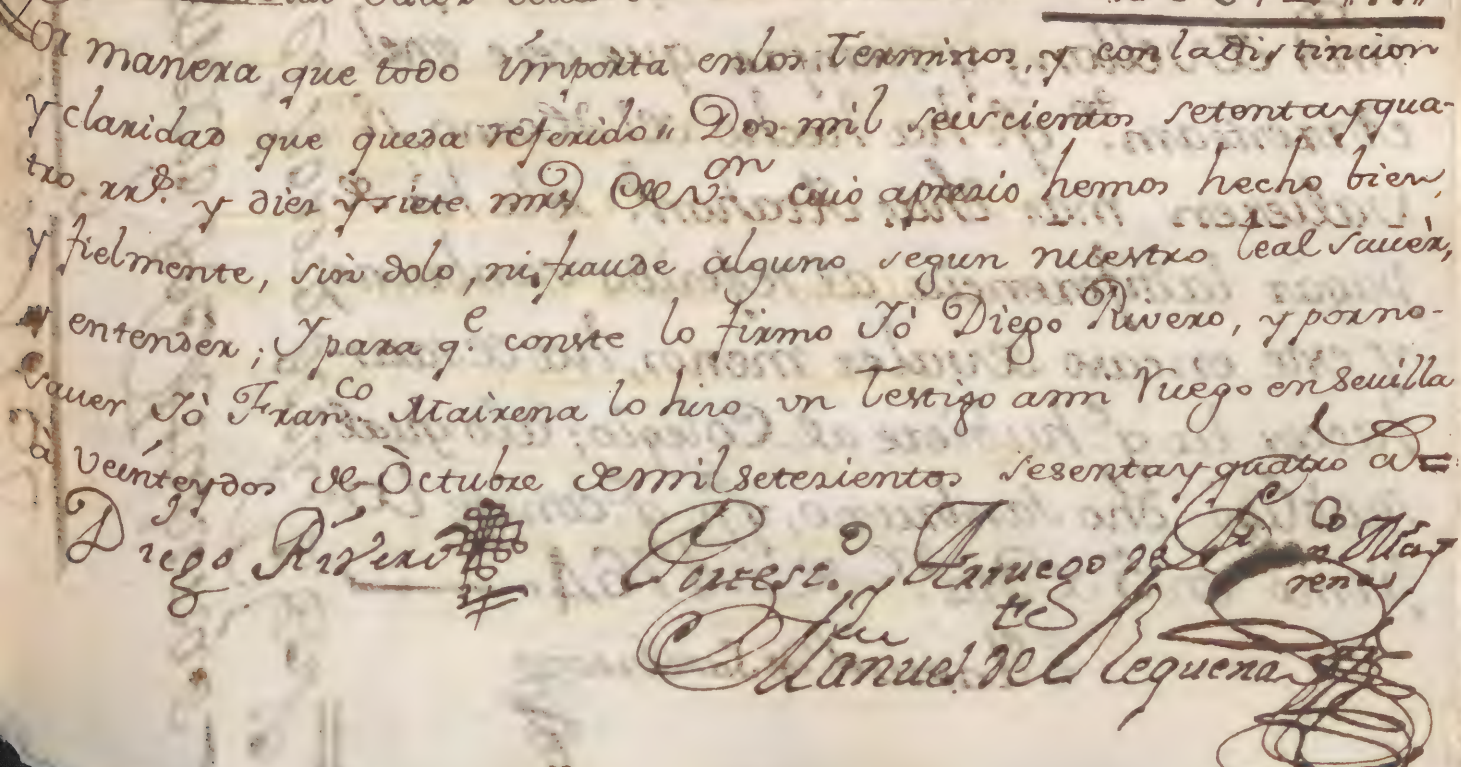 Por manera que todo importa enlos Terminos, y con la distincion
y claridad que queda referido,, Dos mil seiscientos setenta y qua-
tro rr.s y diez y siete mrs de v.on cuio aprezio hemos hecho bien,
y fielmente, sin dolo, ni fraude alguno segun nuestro leal savèr,
y entendèr; y para q.e conste lo firmo Yò Diego Rivero, y por no-
saver Yò Fran.co Mairena lo hizo un Testigo a mi Ruego en Sevilla
à veinte y dos de Octubre de mil setezientos sesenta y quatro a.s=
Diego Rivero
Por test.o y Arruego de Fr.n co May
rena
Manuel de Requena